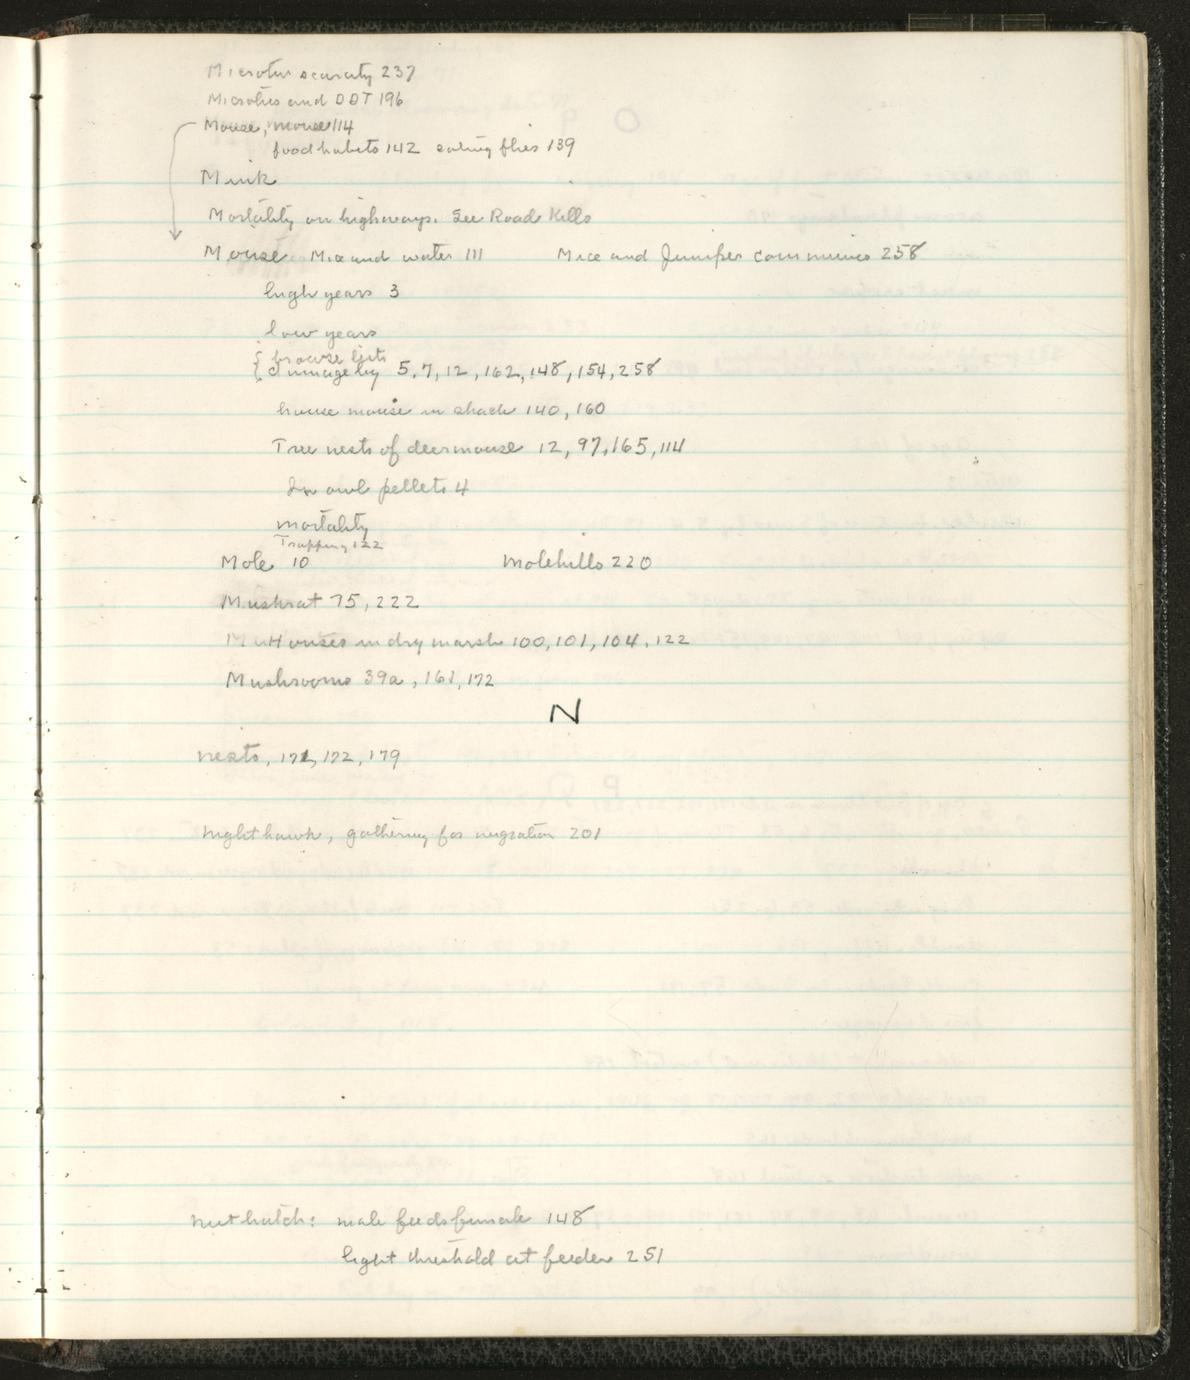 Microtus scarcity 237
Microtus and DDT 196
Mouse, 114
food habits 142 eating flies 139
Mink
Mortality on highways. See Road Kills
Mouse Mice and water 111 Mice and Juniper communis 258
high years 3
low years
browse lists
damage by 5, 7, 12, 162, 148, 154, 258
house mouse in shack 140, 160
Tree nests of deermouse 12, 97, 165, 114
In owl pellets 4
mortality
Trapping 122
Mole 10 Molehills 220
Muskrat 75, 222
Houses in dry marsh 100, 101, 104, 122
Mushrooms 39a, 161, 172
N
nests, 171, 172, 179
nighthawk, gathering for migration 201
nuthatch: male feeds female 148
light threshold at feeder 251